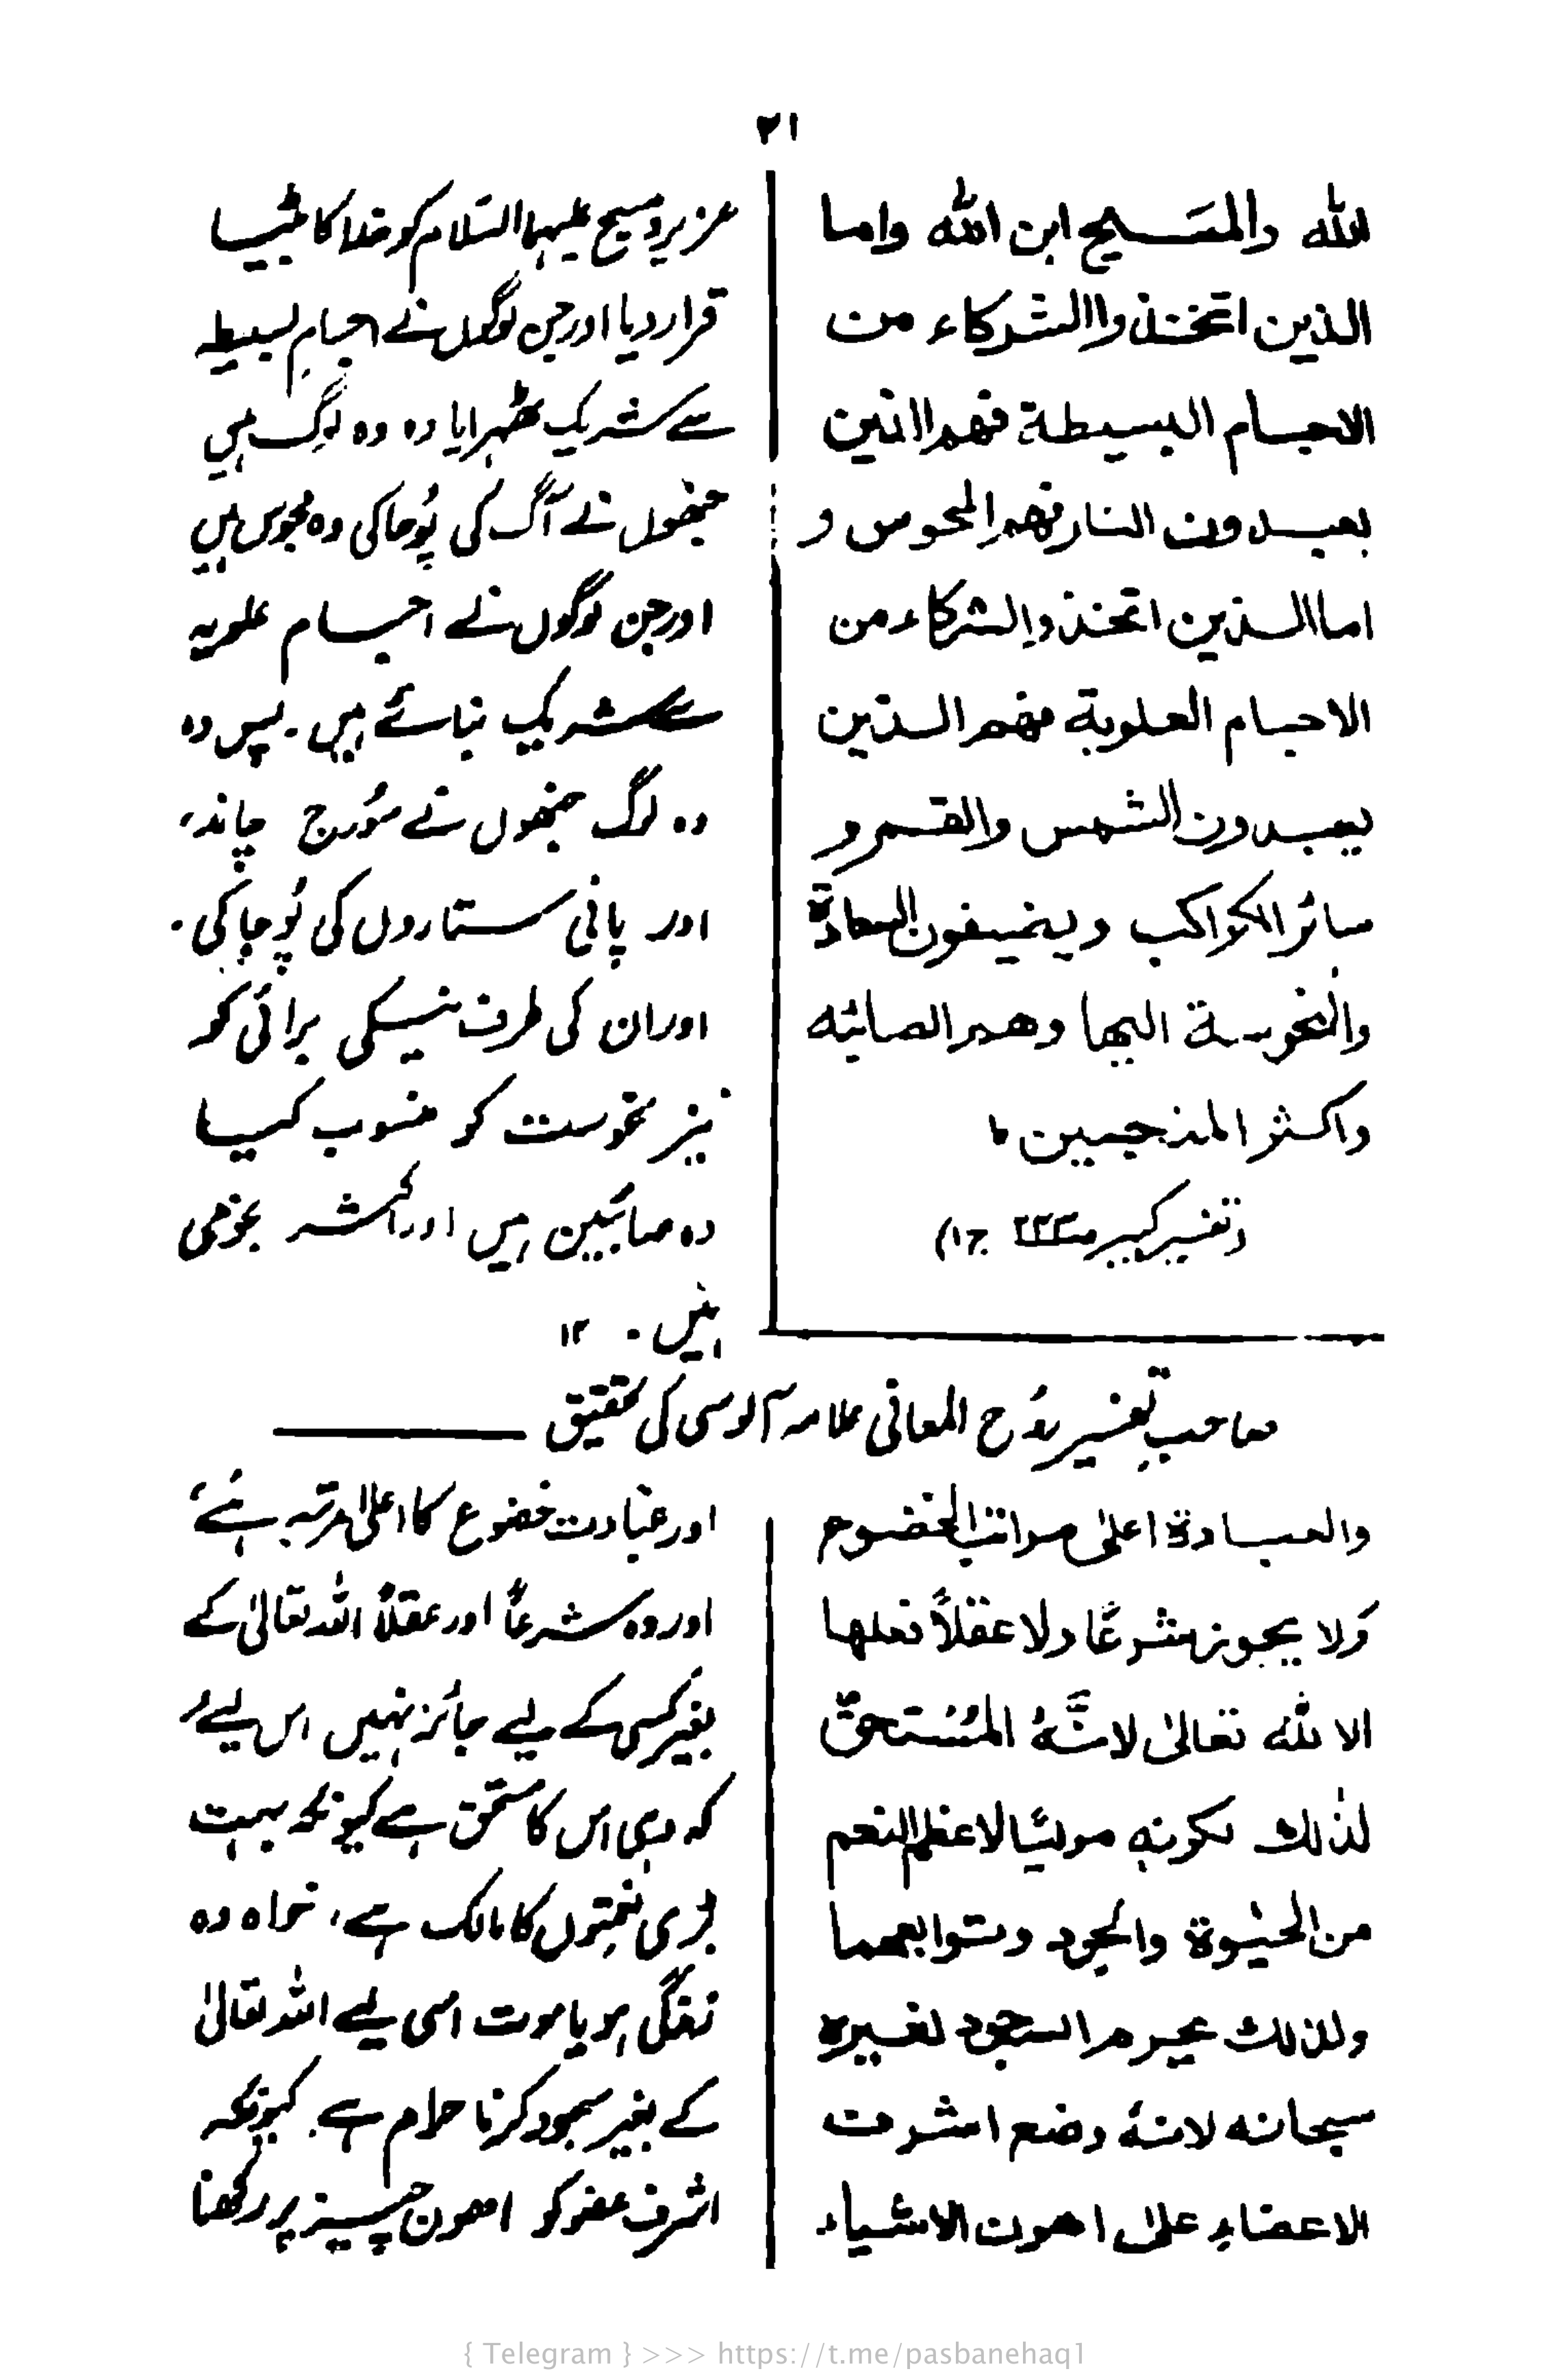 ۲۱
لله والمَسيح ابن الله واما
الذين اتخذوا الشركاء من
الاجسام البسيطة فهم الذين
يعبدون النار فهم المجوس و
اما الذين اتخذوا الشركاء من
الاجسام العلوية فهم الذين
يعبدون الشمس والقمر و
سائر الكواكب ويضيفون السعادة
والنحوسة اليها وهم الصائبه
واكثر المنجمين ۱
(تفسیر کبیر ص۲۳۳ ج۱)
عزیر و مسیح علیہما السّلام کو خدا کا بیٹا
قرار دیا اور جن لوگوں نے اجسامِ بسیطہ
سے شریک ٹھہرایا وہ وہ لوگ ہیں
جنھوں نے آگ کی پُوجا کی وہ مجوس ہیں
اور جن لوگوں نے اجسام علویہ
سے شریک بنائے ہیں۔ پس وہ
وہ لوگ جنھوں نے سُورج چاند،
اور باقی ستاروں کی پُوجا کی۔
اور ان کی طرف نیکی برائی کو
نیز نحوست کو منسوب کیا
وہ صابئین ہیں اور اکثر نجومی
ہیں۔ ۱۲
صاحبِ تفسیر رُوح المعانی علامہ آلوسی کی تحقیق
والعبادة اعلیٰ مراتب الخضوع
وَلا يجوز شرعًا ولا عقلاً فعلها
الا لله تعالیٰ لانّهُ المُستحقّ
لذلك لكونهٖ موليًا لاعظم النعم
من الحيٰوة والوجود وتوابعهما
ولذلك يحرم السجود لغيره
سبحانه لانهٗ وضع اشرف
الاعضاء علىٰ اهون الاشياء
اور عبادت خضوع کا اعلیٰ مرتبہ ہے،
اور وہ شرعاً اور عقلاً اللہ تعالیٰ کے
بغیر کسی کے لیے جائز نہیں اس لیے
کہ وہی اس کا مستحق ہے کیونکہ بہت
بڑی نعمتوں کا مالک ہے، خواہ وہ
زندگی ہو یا موت اسی لیے اللہ تعالیٰ
کے بغیر سجود کرنا حرام ہے۔ کیونکہ
اشرف عضو کو اھون چیز پر رکھنا
{ Telegram } >>> https://t.me/pasbanehaq1